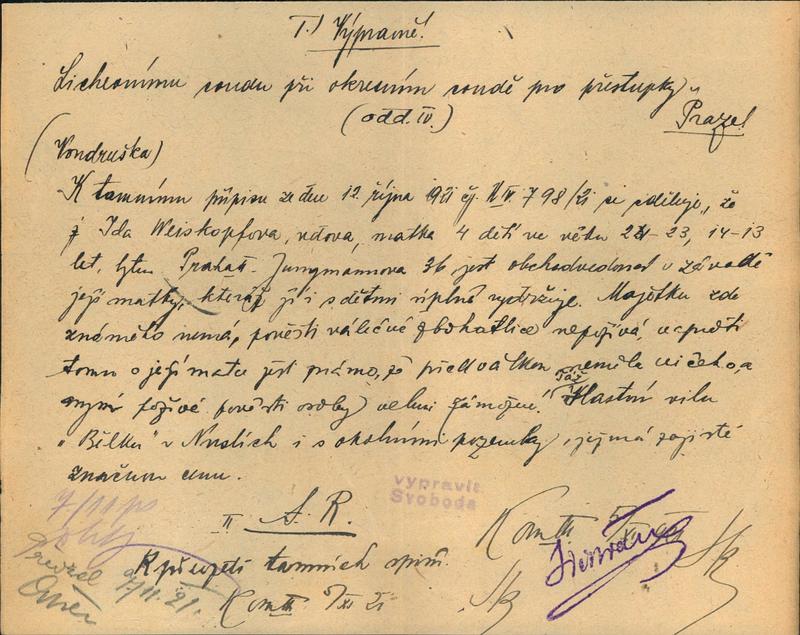 I.) Výpravně!
Lichevnímu soudu při okresním soudě pro přestupky v
(odd. IV.) Praze!
(Vondruška)
K tamnímu přípisu ze dne 12. října 1921 čj. IV 798/21 se sděluje, že
Ida Weiskopfova, vdova, matka 4 dětí ve věku 23, 14-13
let, bytem Praha Jungmannova 36 jest obchodvedoucí v závodě
její matky, kteráž ji i s dětmi úplně vydržuje. Majetku zde
známého nemá, pověsti válečné zbohatlice nepožívá, naproti
tomu o její matce jest známo, že před válkou neměla ničeho, a
nyní požívá pověsti osoby velmi zámožné. Táž Vlastní vilu
"Bělka" v Nuslích i s okolními pozemky, jež má zajisté
značnou cenu.
vypravit
Svoboda
7/11
II A. R.
K převzetí tamních spisů.
Převzal 9/11. 21.
Kom III 5/XI 21
Kom III 5/XI 21